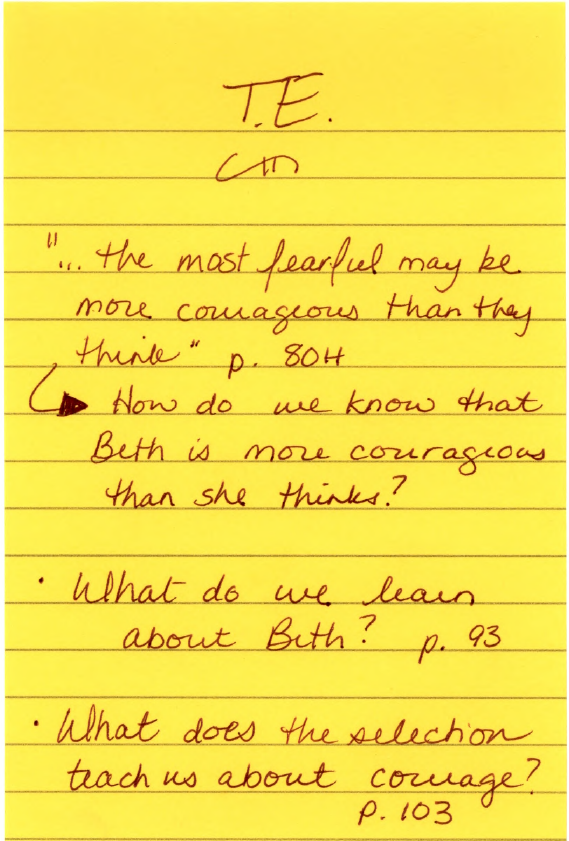 T.E.
"... the most fearful may be
more courageous than they
think" p. 80H
How do we know that
Beth is more courageous
than she thinks?
· What do we learn
about Beth? p. 93
· What does the selection
teach us about courage?
p. 103